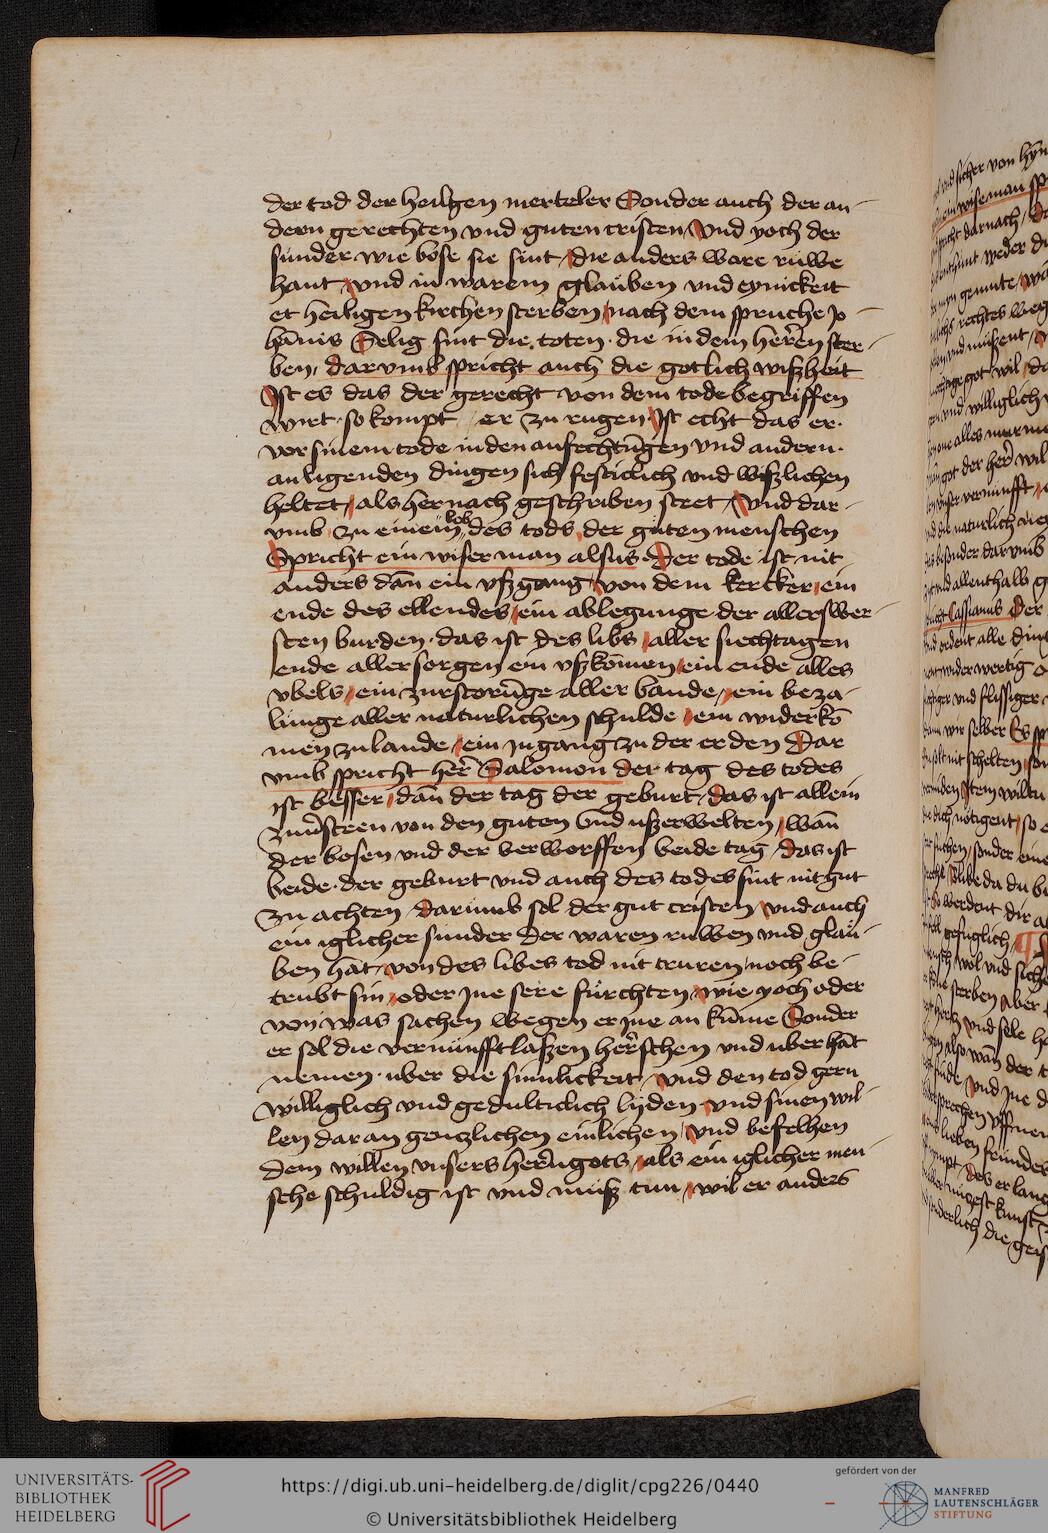 der tod der heilgen merteler Sonder auch der an-
dern gerechten vnd guten cristen / Vnd yoch der
sunder wie bose sie sint / die anders ware ruwe
hant / vnd in warem glauben vnd eynickeit
et heiligen kirchen sterben / nach dem spruche Jo-
hānis Selig sint die toten · die in dem herren ster-
ben / dar vmb spricht auch die gotlich wiszheit
Ist es das der gerecht von dem tode begriffen
wirt · so kompt er zu rugen · Ist echt das er ·
vor sinem tode in den anfechtūgen vnd andern ·
anligenden dingen sich festiclich vnd wiszlichen
heltet / als hernach geschriben stet / Vnd dar-
vmb zu einem lob des tods der guten menschen
Spricht ein wiser man alsus · Der tode ist nit
anders dān ein vszgang / von dem kercker / ein
ende des ellendes / ein ablegunge der allerswer-
sten burden · das ist des libs / aller siechtagen
ende aller sorgen ein vszkōmen / ein ende alles
vbels / ein zurstorūge aller bande / ein beza-
lunge aller naturlichen schulde / ein widerkō
men zu lande / ein jngang zu der erden Dar
vmb spricht her Salomon der tag des todes
ist besser / dān der tag der geburt / das ist allein
zuuersteen von den guten vnd uszerwelten / wān
der bosen vnd der verworffen beide tag / das ist
beide · der geburt vnd auch des todes sint nit gut
zu achten / darumb sol der gut cristen / vnd auch
ein iglicher sunder Der waren ruwen vnd glau-
ben hāt / von des libes tod nit truren / noch be-
trubt sin / oder jne sere furchten / wie yoch oder
von was sachen wegen er jne an kūme Sonder
er sol die vernunfft laszen herschen vnd uberhāt
nemen · uber die sinnlickeit / vnd den tod gern
williglich vnd gedulticlich lyden / vnd sinen wil-
len dar an gentzlichen einlichen / vnd befelhen
dem willen vnsers hern gots / als ein iglicher men-
sche schuldig ist vnd musz tun / wil er anders
UNIVERSITÄTS-
BIBLIOTHEK
HEIDELBERG
https://digi.ub.uni-heidelberg.de/diglit/cpg226/0440
© Universitätsbibliothek Heidelberg
gefördert von der
MANFRED
LAUTENSCHLÄGER
STIFTUNG